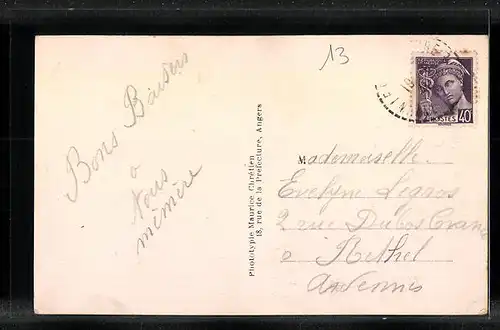 13
Bons Baisers
a
Nous
mémère
Phototypie Maurice Chrétien
18, rue de la Préfecture, Angers
POSTES 40
Mademoiselle
Evelyne Legros
2 rue Dubos
a Rethel
Ardennes